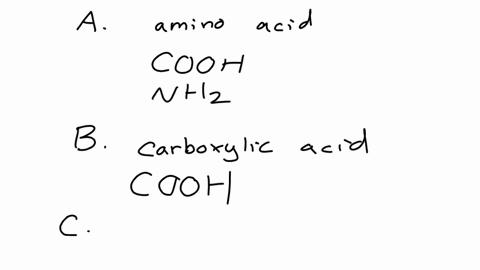 A. amino acid
COOH
NH2
B. carboxylic acid
COOH
C.